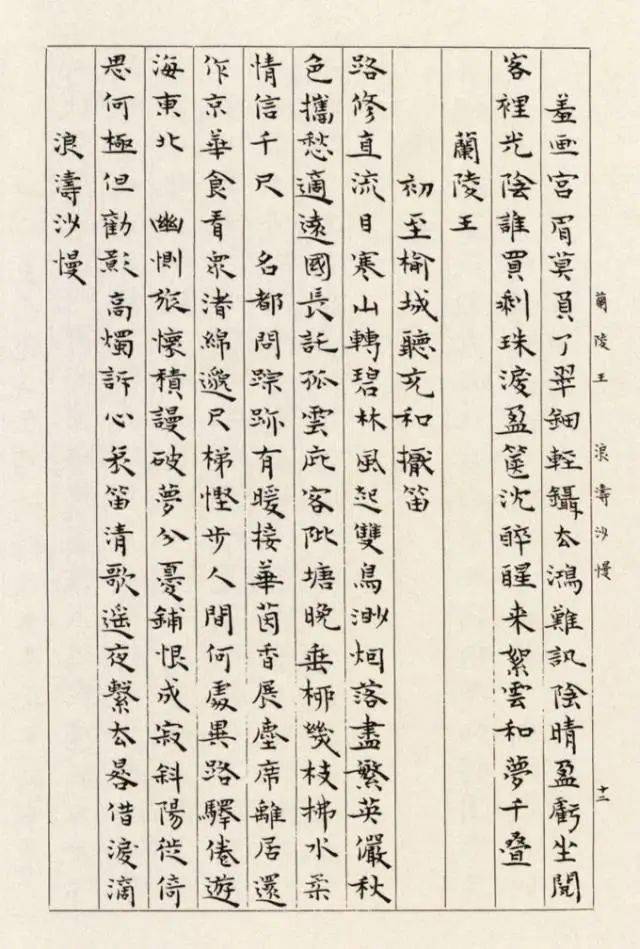 蘭陵王　浪濤沙慢　十二
羞画宮眉莫負了翠鈿輕鑷去鴻難訊陰晴盈虧坐閲
客裡光陰誰買剩珠淚盈篋沈醉醒来絮雲和夢千疊
蘭陵王
初至榆城聽充和擫笛
路修直流目寒山轉碧林風起雙鳥渺烟落盡繁英儼秋
色攜愁適遠國長託孤雲庇客陂塘晚垂柳幾枝拂水柔
情信千尺　名都問踪跡有暖接華茵香展塵席離居還
作京華食看衆渚綿邈尺梯慳步人間何處異路驛倦遊
海東北　幽惻旅懷積謾破夢分憂鋪恨成寂斜陽徙倚
思何極但勸影高燭訴心哀笛清歌遥夜繫去晷借淚滴
浪濤沙慢